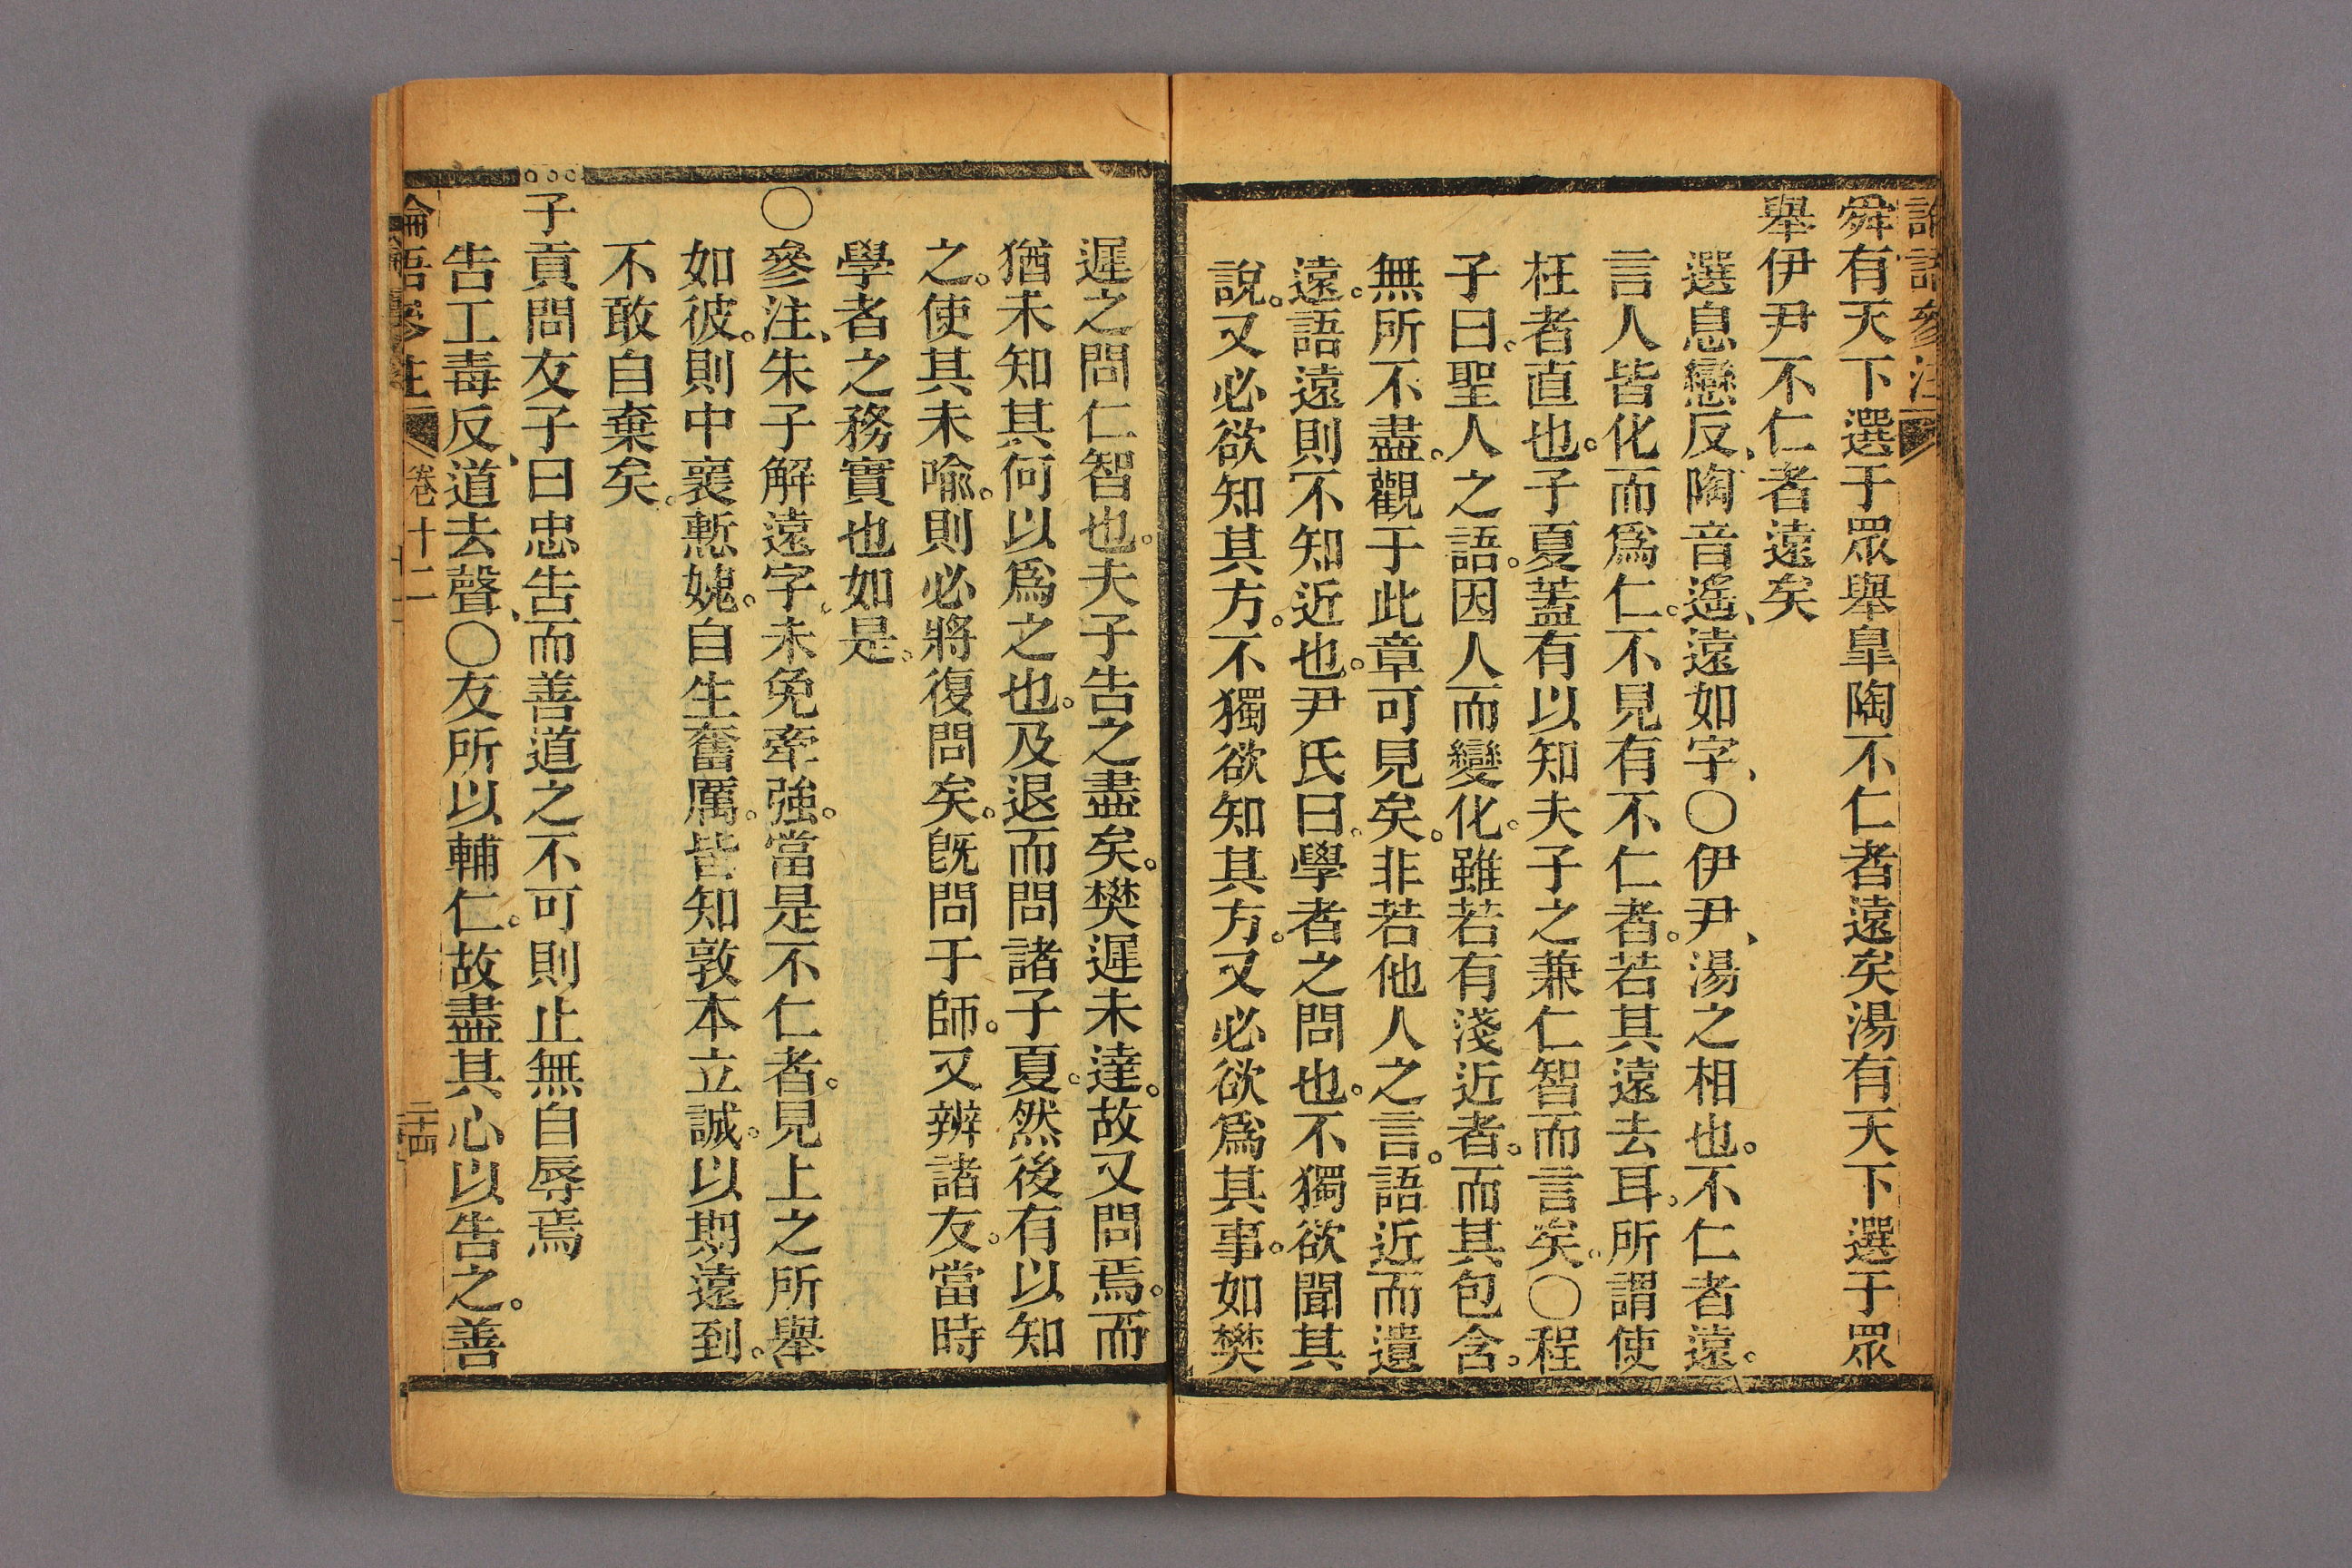 論語參注
舜有天下選于眾舉皐陶不仁者遠矣湯有天下選于眾
舉伊尹不仁者遠矣
選息戀反、陶音遙、遠如字、〇伊尹、湯之相也。不仁者遠。
言人皆化而爲仁。不見有不仁者。若其遠去耳。所謂使
枉者直也。子夏蓋有以知夫子之兼仁智而言矣。〇程
子曰。聖人之語。因人而變化。雖若有淺近者。而其包含。
無所不盡。觀于此章可見矣。非若他人之言。語近而遺
遠。語遠則不知近也。尹氏曰。學者之問也。不獨欲聞其
說。又必欲知其方。不獨欲知其方。又必欲爲其事。如樊
遲之問仁智也。夫子告之盡矣。樊遲未達。故又問焉。而
猶未知其何以爲之也。及退而問諸子夏。然後有以知
之。使其未喻。則必將復問矣。旣問于師。又辨諸友。當時
學者之務實也如是。
〇參注、朱子解遠字、未免牽強。當是不仁者。見上之所舉
如彼。則中襄慙媿。自生奮厲。皆知敦本立誠。以期遠到。
不敢自棄矣。
子貢問友子曰忠告而善道之不可則止無自辱焉
告工毒反、道去聲、〇友所以輔仁。故盡其心以告之。善
論語參注 卷十二 二十四